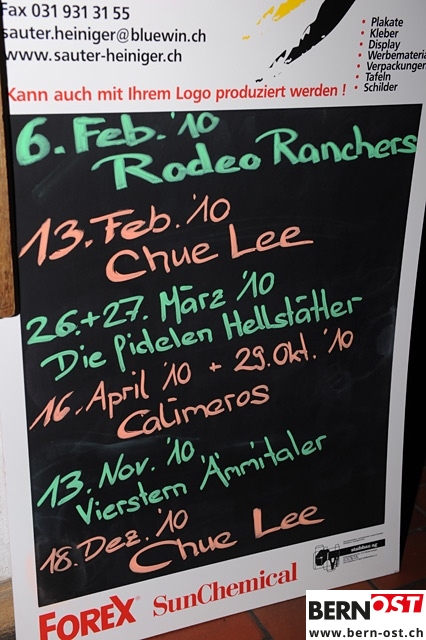 Fax 031 931 31 55
sauter.heiniger@bluewin.ch
www.sauter-heiniger.ch
• Plakate
• Kleber
• Display
• Werbematerial
• Verpackungen
• Tafeln
• Schilder
Kann auch mit Ihrem Logo produziert werden !
6. Feb. '10
Rodeo Ranchers
13. Feb. '10
Chue Lee
26.+27. März '10
Die fidelen Hellstätter
16. April '10 + 29. Okt. '10
Calimeros
13. Nov. '10
Vierstern Ämmitaler
18. Dez. '10
Chue Lee
FOREX SunChemical
BERNOST
www.bern-ost.ch